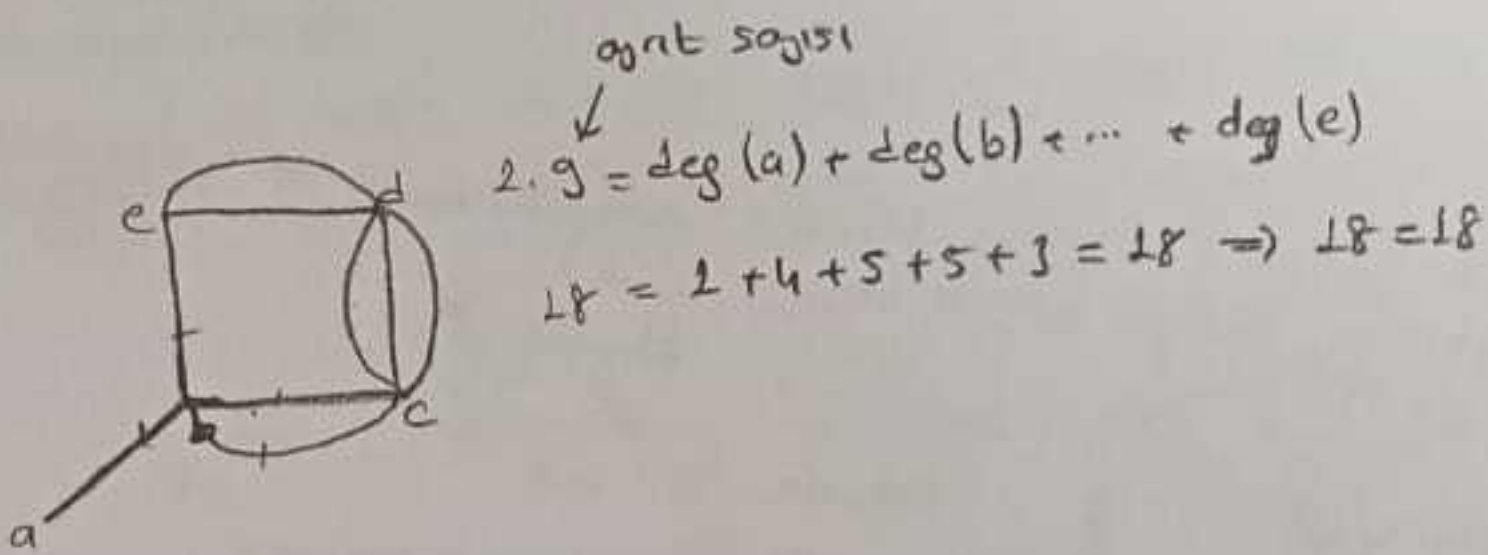 ayrıt sayısı
2.9 = deg(a) + deg(b) + ... + deg(e)
18 = 1 + 4 + 5 + 5 + 3 = 18 ⇒ 18 = 18
e
d
c
a